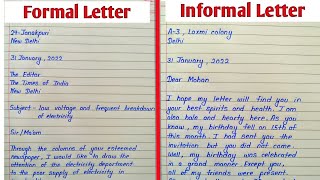 Formal Letter
29-Janakpuri
New Delhi
31 January, 2022
The Editor
The Times of India
New Delhi
Subject - low voltage and frequent breakdown
of electricity
Sir/Ma'am
Through the columns of your esteemed
newspaper, I would like to draw the
attention of the electricity department
to the poor supply of electricity in
Informal Letter
A-3, Laxmi colony
Delhi
31 January, 2022
Dear Mohan
I hope my letter will find you in
your best spirits and health. I am
also hale and hearty here. As you
know, my birthday fell on 15th of
this month. I had sent you the
invitation but you did not come.
Well, my birthday was celebrated
in a grand manner. Except you,
all of my friends were present.